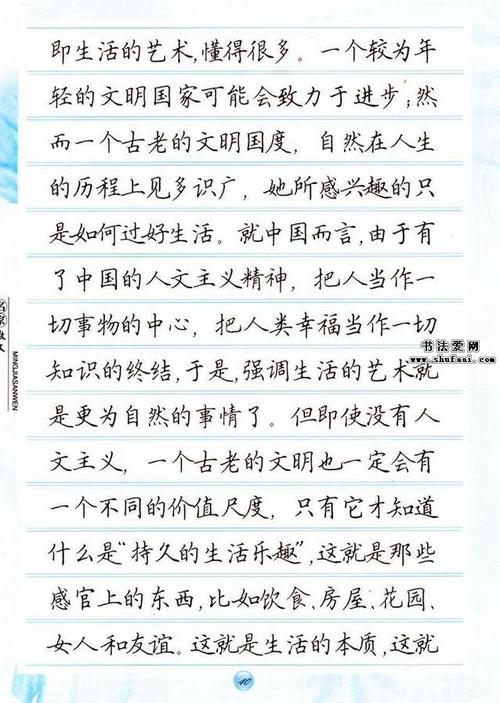 即生活的艺术,懂得很多。一个较为年
轻的文明国家可能会致力于进步;然
而一个古老的文明国度，自然在人生
的历程上见多识广，她所感兴趣的只
是如何过好生活。就中国而言,由于有
了中国的人文主义精神，把人当作一
切事物的中心，把人类幸福当作一切
知识的终结,于是,强调生活的艺术就
是更为自然的事情了。但即使没有人
文主义，一个古老的文明也一定会有
一个不同的价值尺度，只有它才知道
什么是“持久的生活乐趣”,这就是那些
感官上的东西,比如饮食、房屋、花园、
女人和友谊。这就是生活的本质,这就
MINGJIASANWEN
书法爱网
www.shufaai.com
40